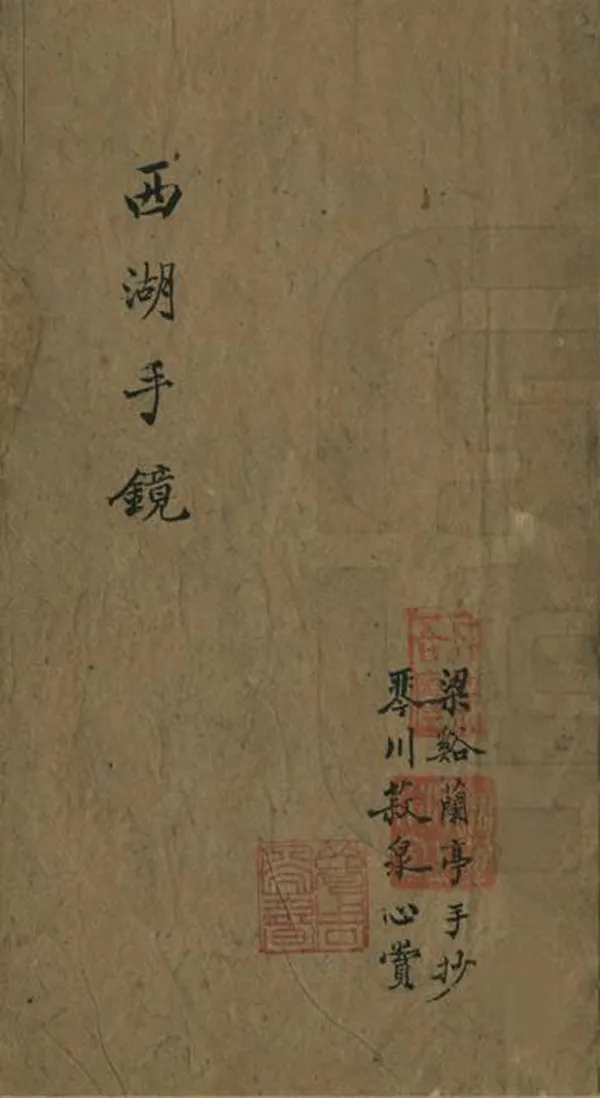 西湖手鏡
梁谿蘭亭手抄
琴川菽泉心賞